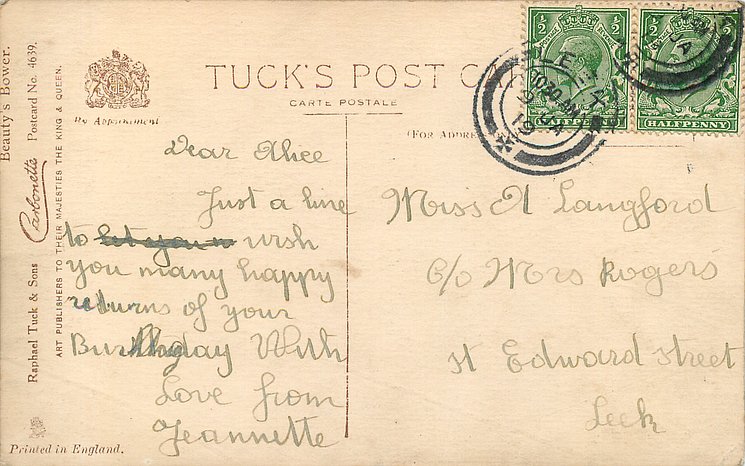 Beauty's Bower.
Raphael Tuck & Sons Carbonette Postcard No. 4639.
ART PUBLISHERS TO THEIR MAJESTIES THE KING & QUEEN.
By Appointment
TUCK'S POST C
CARTE POSTALE
(FOR ADDRE
HALFPENNY
Dear Alice
Just a line
to let you n wish
you many happy
returns of your
Burthday With
Love from
Jeannette
Miss A Langford
C/o Mrs Rogers
st Edward street
Leek
Printed in England.